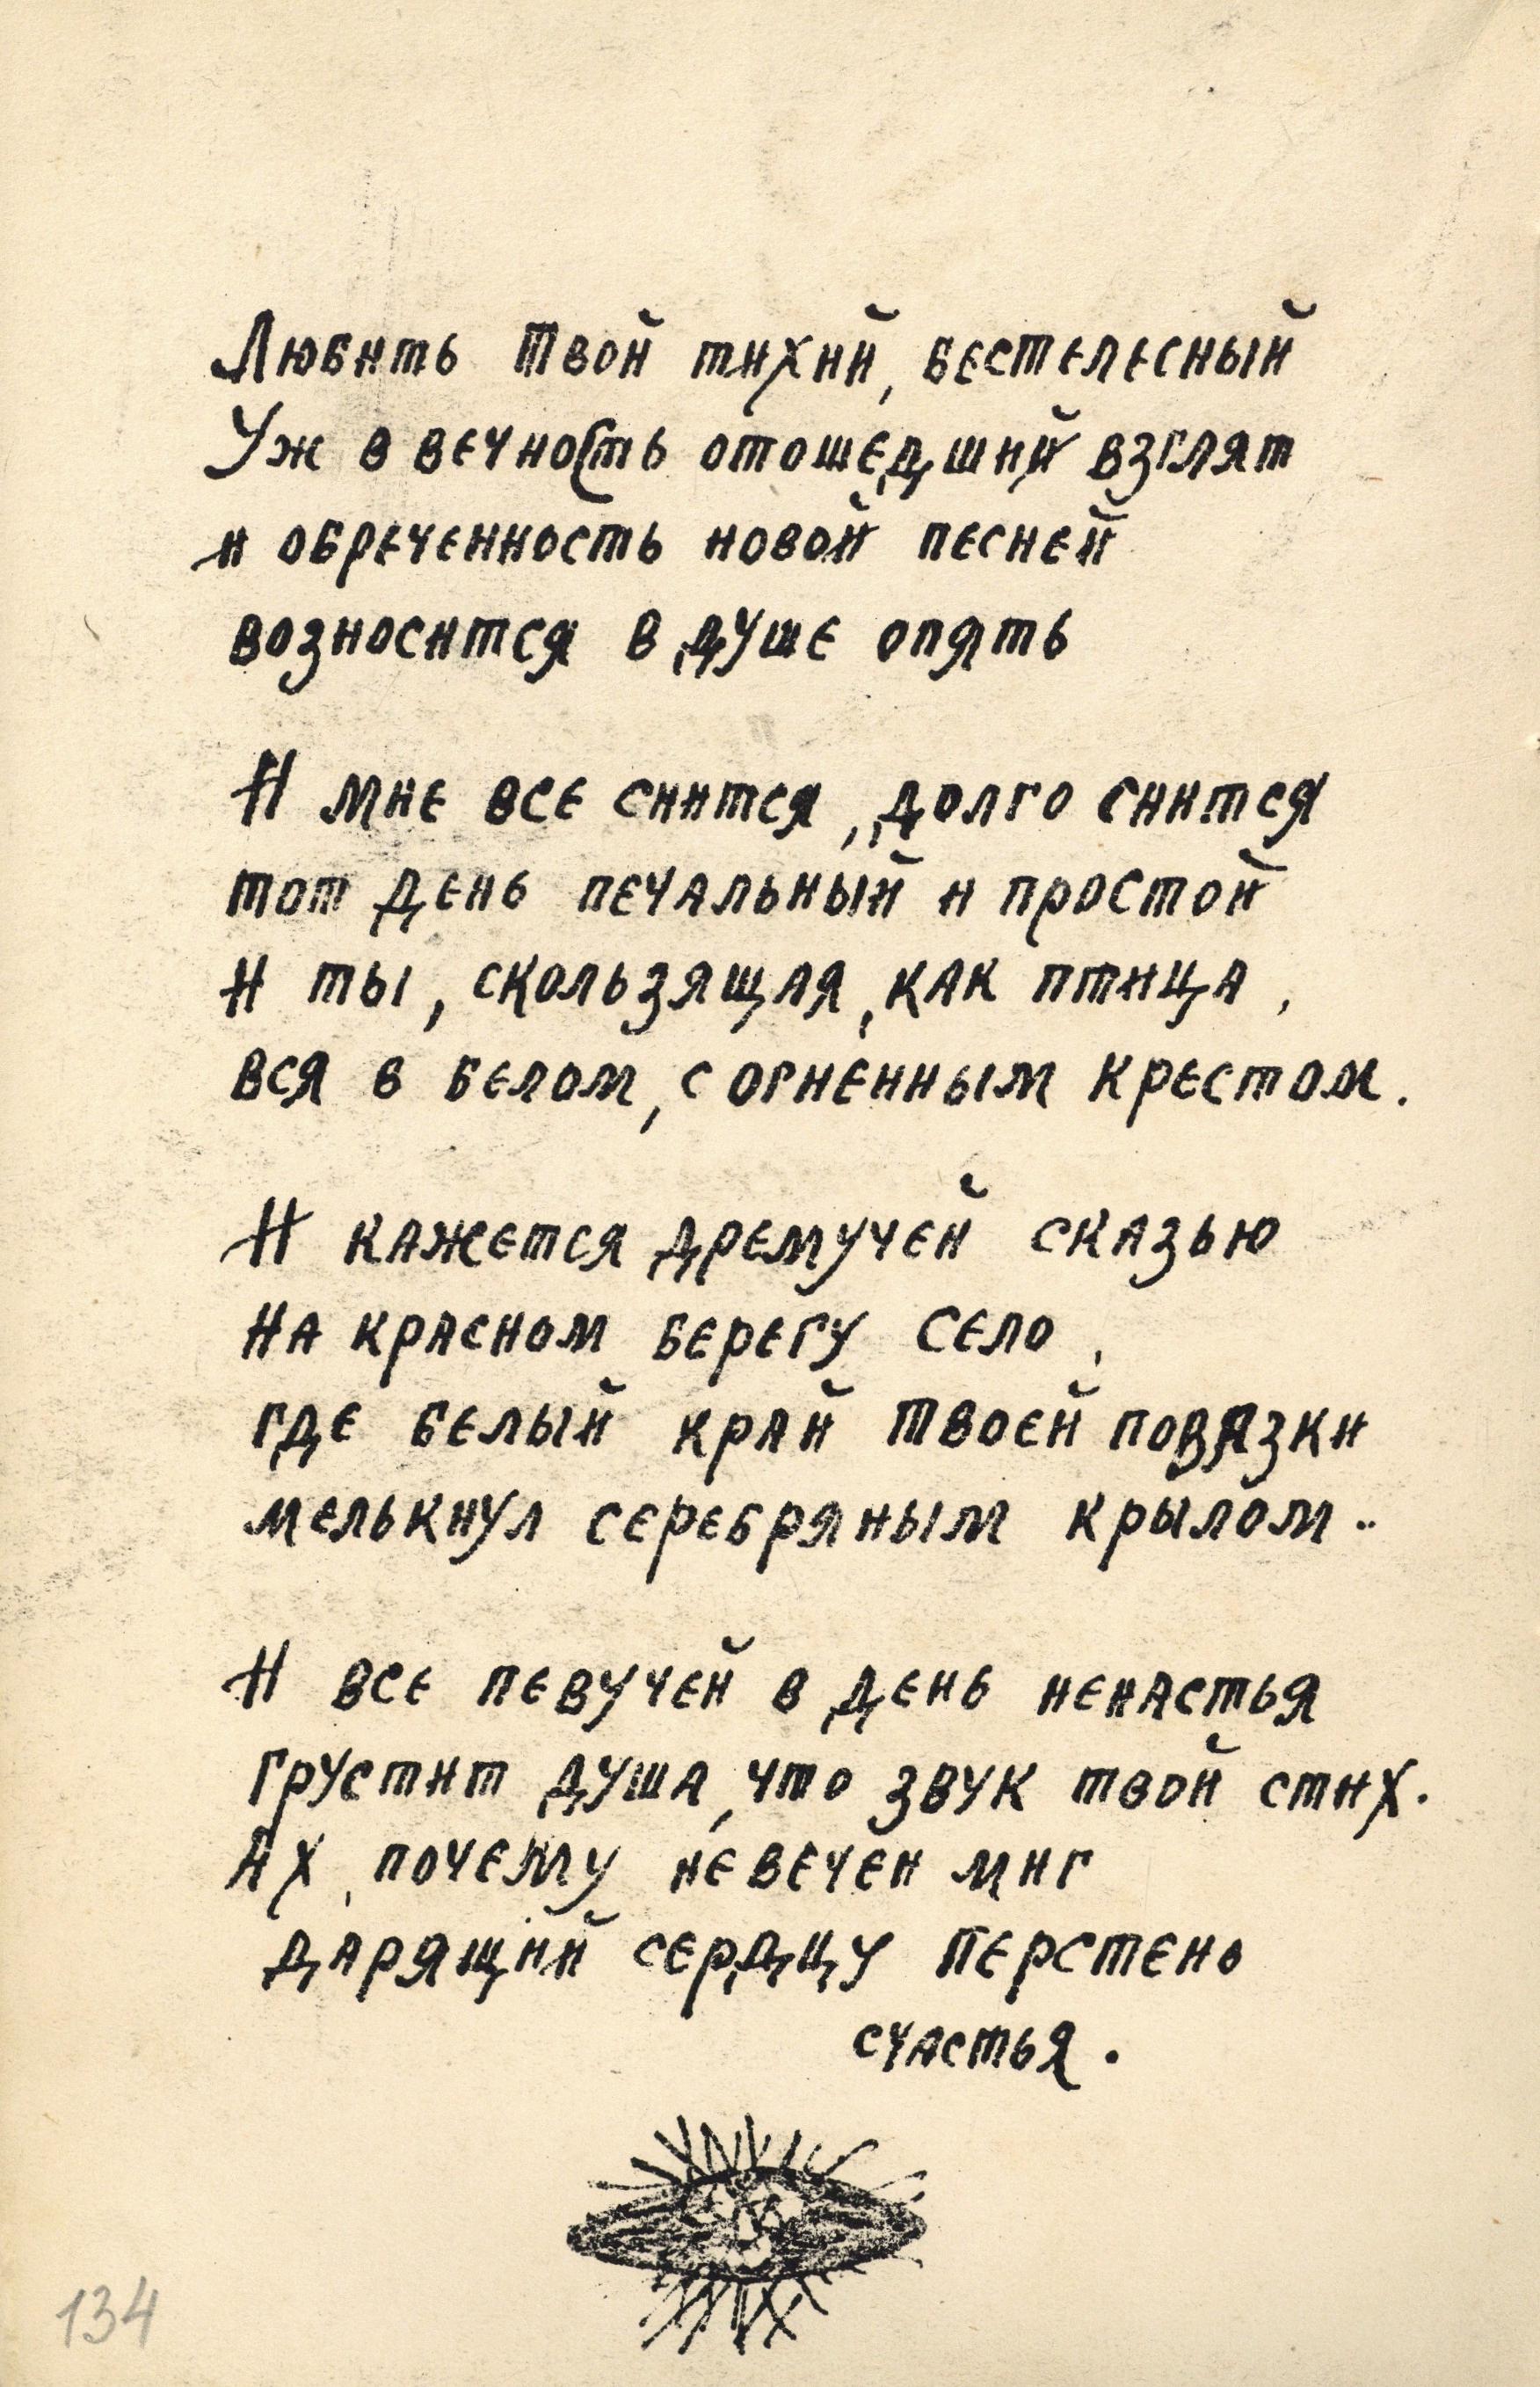 Любить твой тихий, бестелесный
Уж в вечность отошедший взглят
и обреченность новой песней
возносится в душе опять
И мне все снится, долго снится
тот день печальный и простой
И ты, скользящая, как птица,
вся в белом, с огненным крестом.
И кажется дремучей сказью
на красном берегу село,
где белый край твоей повязки
мелькнул серебряным крылом..
И все певучей в день ненастья
грустит душа, что звук твой стих.
Ах, почему не вечен миг
дарящий сердцу перстень
счастья.
134